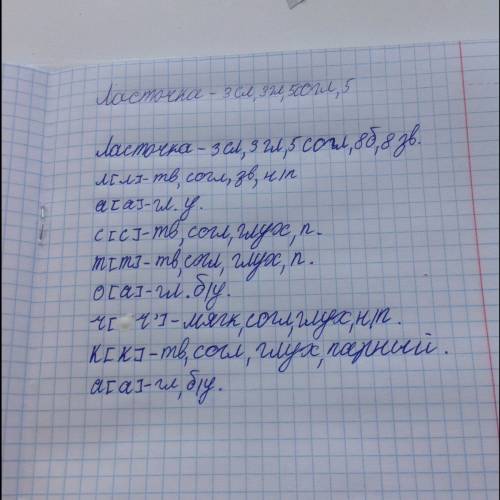 Ласточка - 3 сл, 3 гл, 5 согл, 5
Ласточка - 3 сл, 3 гл, 5 согл, 8б, 8 зв.
л[л]-тв, согл, зв, н/п
а[а]-гл. у.
с[с]-тв, согл, глух, п.
т[т]-тв, согл, глух, п.
о[а]-гл. б/у.
ч[ч']-мягк, согл, глух, н/п.
к[к]-тв, согл, глух, парный.
а[а]-гл, б/у.